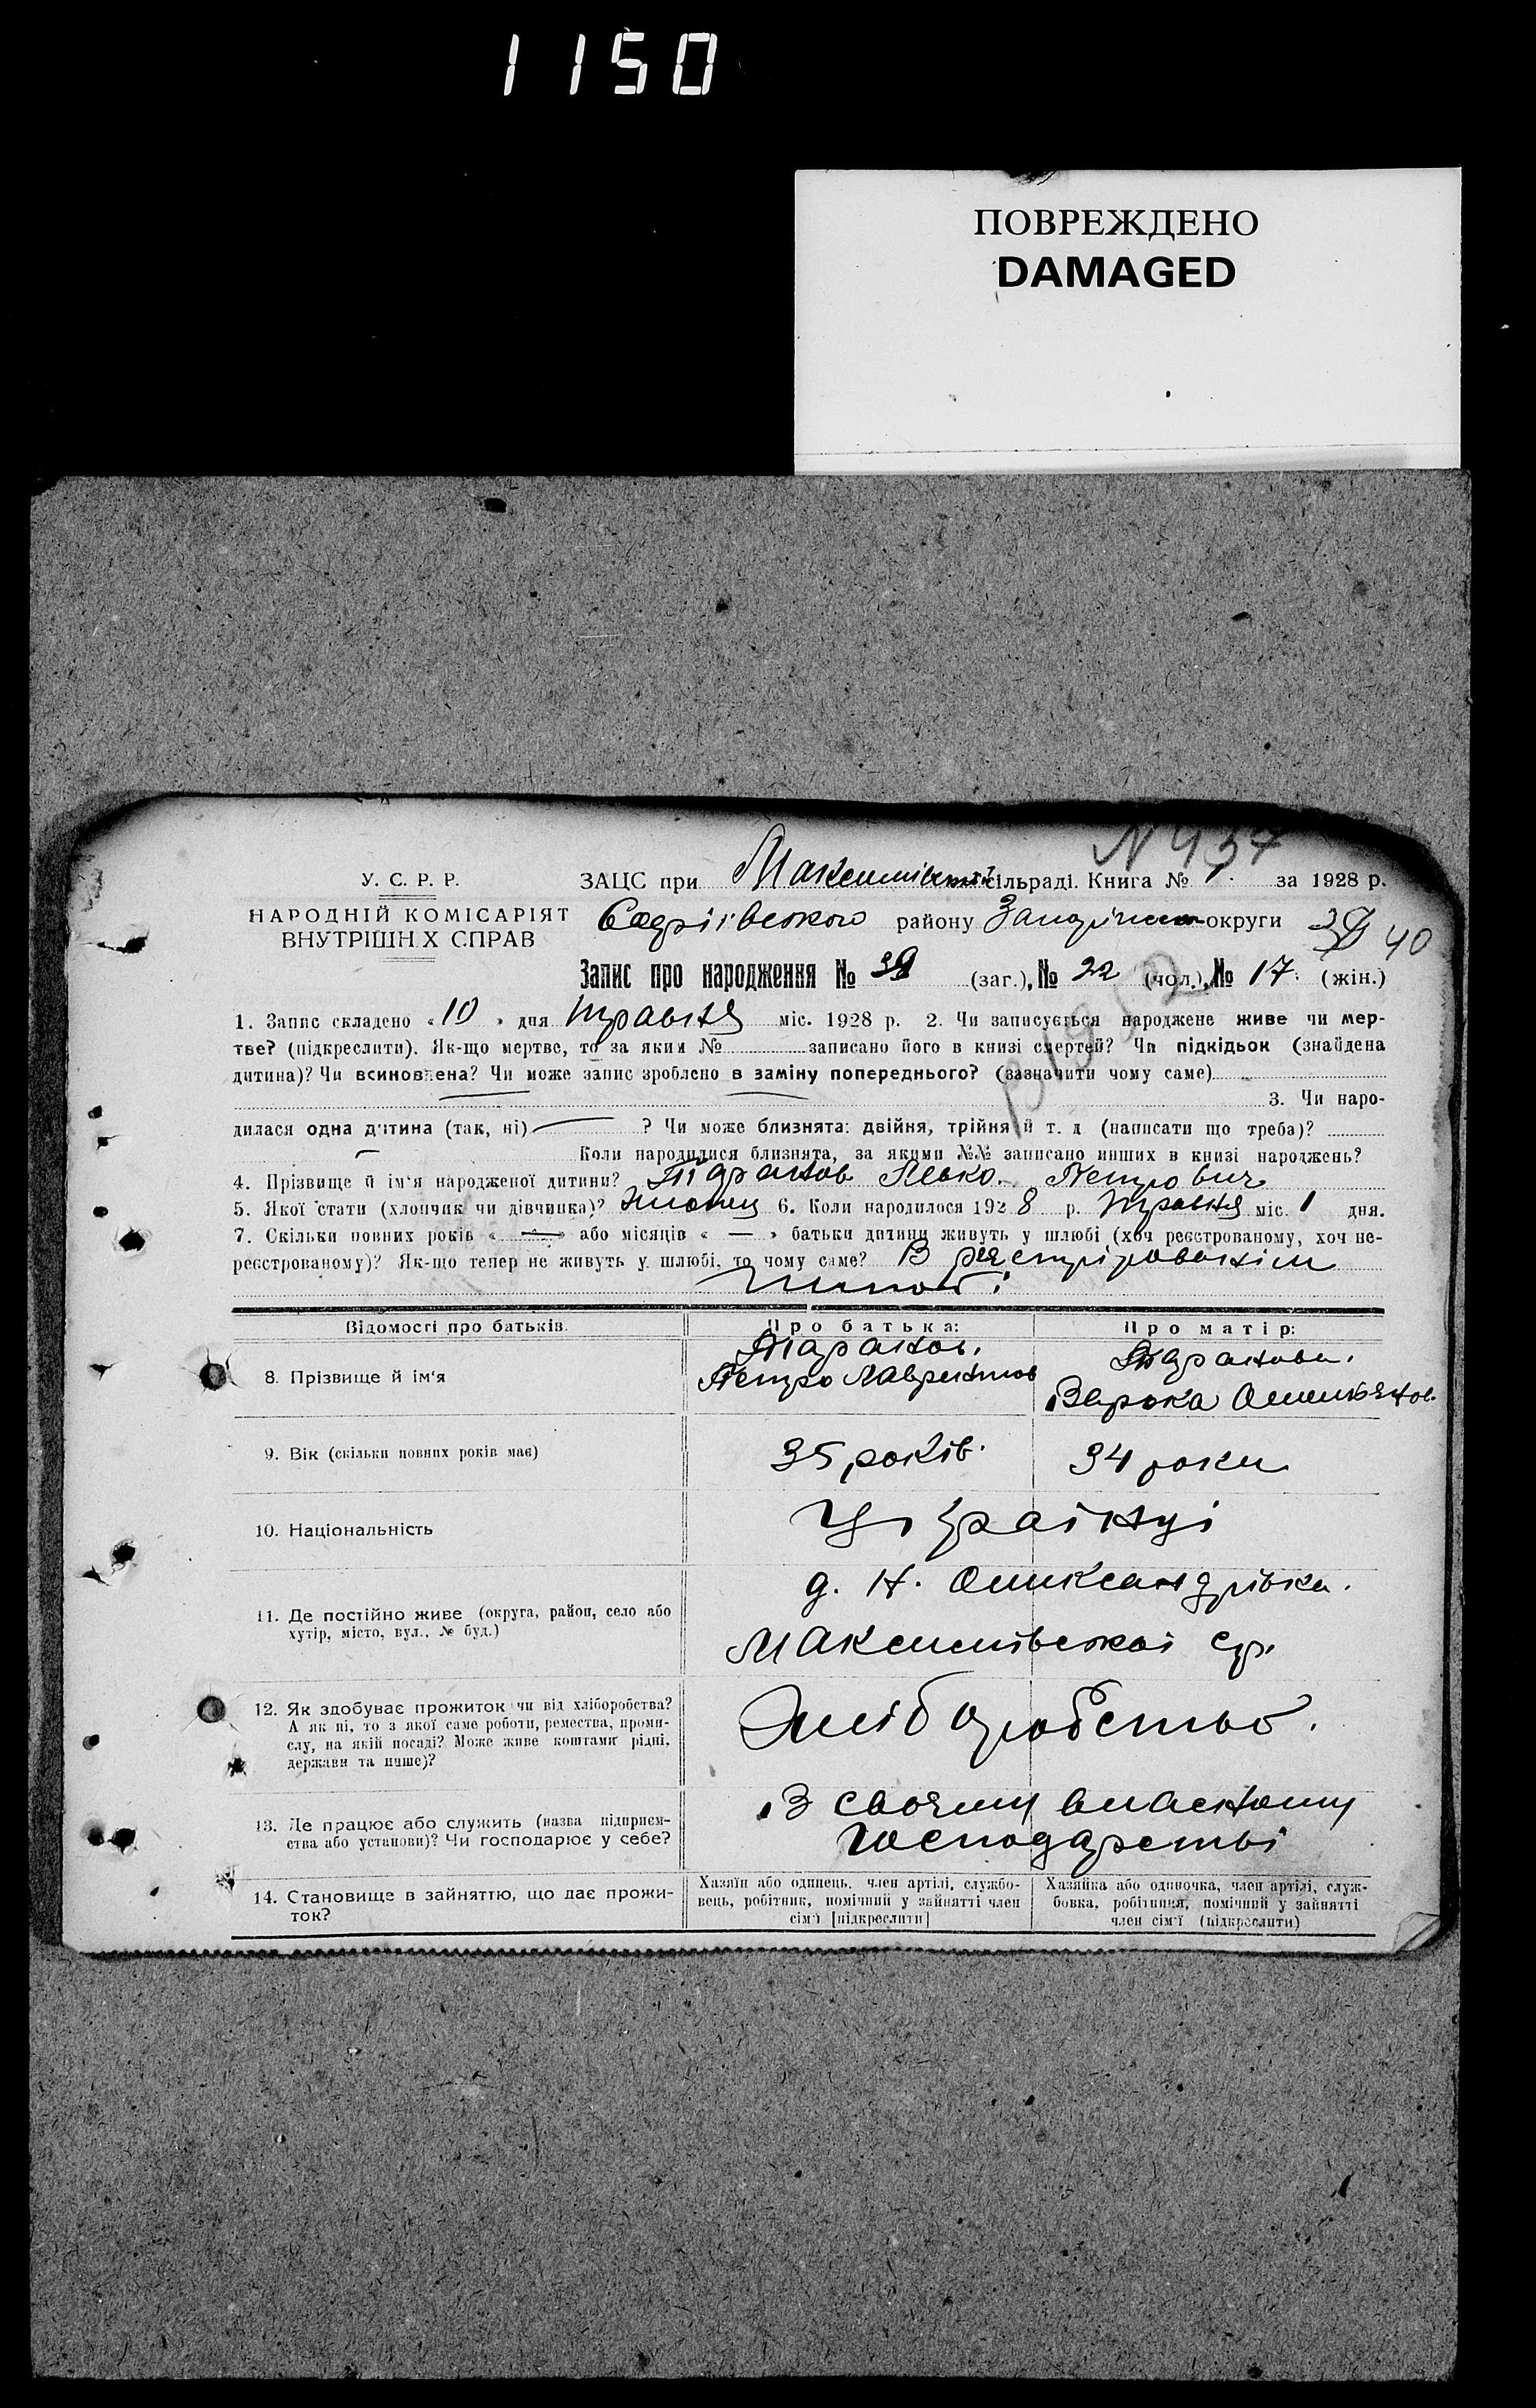 1150
ПОВРЕЖДЕНО
DAMAGED
N 437
У. С. Р. Р.
НАРОДНІЙ КОМІСАРІЯТ
ВНУТРІШН Х СПРАВ
ЗАЦС при Максимівській сільраді. Книга № 1. за 1928 р.
району округи 40
Запис про народження № 39 (заг.), № 22 (чол.), № 17. (жін.)
1. Запис складено «10» дня травня міс. 1928 р. 2. Чи записується народжене живе чи мер-
тве? (підкреслити). Як-що мертве, то за яким № записано його в книзі смертей? Чи підкідьок (знайдена
дитина)? Чи всиновлена? Чи може запис зроблено в заміну попереднього? (зазначити чому саме)
3. Чи наро-
дилася одна дитина (так, ні) — ? Чи може близнята: двійня, трійня й т. д (написати що треба)?
— Коли народилися близнята, за якими №№ записано инших в книзі народжень?
4. Прізвище й ім'я народженої дитини? Таранов Левко Петрович
5. Якої стати (хлопчик чи дівчинка)? хлопец 6. Коли народилося 1928 р. травня міс. 1 дня.
7. Скільки повних років « — » або місяців « — » батьки дитини живуть у шлюбі (хоч реєстрованому, хоч не-
реєстрованому)? Як-що тепер не живуть у шлюбі, то чому саме? В реєстрірованім
шлюбі
Відомості про батьків.
Про батька:
Про матір:
8. Прізвище й ім'я
Таранов.
Петро Лаврентов
Таранова.
Варька
9. Вік (скільки повних років має)
35 років.
34 роки
10. Національність
Українці
11. Де постійно живе (округа, район, село або
хутір, місто, вул., № буд.)
д. Н. Олександрівка.
Максимівської ср.
12. Як здобуває прожиток чи від хліборобства?
А як ні, то з якої саме роботи, ремества, проми-
слу, на якій посаді? Може живе коштами рідні,
держави та инше)?
Хліборобство.
13. Де працює або служить (назва підприєм-
ства або установи)? Чи господарює у себе?
В своєму власному
господарстві
14. Становище в зайняттю, що дає прожи-
ток?
Хазяїн або одинець, член артілі, службо-
вець, робітник, помічний у зайнятті член
сім'ї [підкреслити]
Хазяйка або одиночка, член артілі, служ-
бовка, робітниця, помічний у зайнятті
член сім'ї (підкреслити)